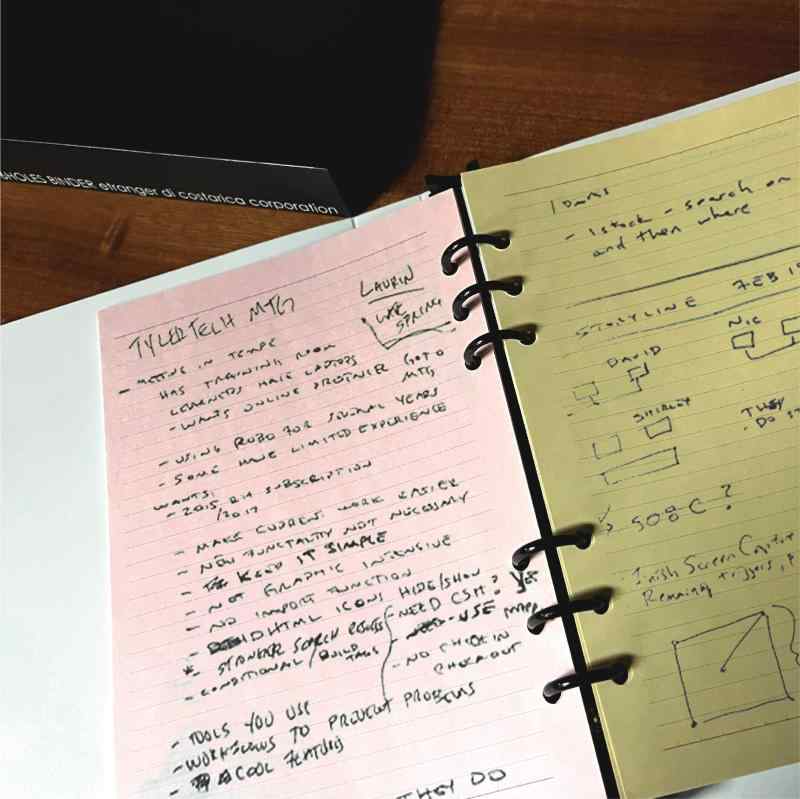 HOLES BINDER etranger di costarica corporation
TYLERTECH MTG
LAURIN
LATE
SPRING
- MEETING IN TEMPE
HAS TRAINING ROOM
LEARNERS HAVE LAPTOPS
- WANTS ONLINE
GOTO
MTG
- USING ROBO FOR SEVERAL YEARS
- SOME HAVE LIMITED EXPERIENCE
WANTS:
- 2015 RH SUBSCRIPTION
/2017
- MAKE CURRENT WORK EASIER
- NEW FUNCTALITY NOT NECESSARY
- KEEP IT SIMPLE
- NOT GRAPHIC INTENSIVE
- NO IMPORT FUNCTION
- DHTML ICONS HIDE/SHOW
* STRONGER SEARCH RESULTS
- CONDITIONAL / BUILD
TAGS
- NEED CSH? YES
- USE
- NO CHECK IN
CHECKOUT
- TOOLS YOU USE
- WORKFLOWS TO PREVENT PROBLEMS
- COOL FEATURES
THEY DO
- istock - search on
and then where
STORYLINE FEB 15
DAVID
NIC
SHIRLEY
THEY
- DO
508 C?
- Finish Screen Captur
Remaining triggers,